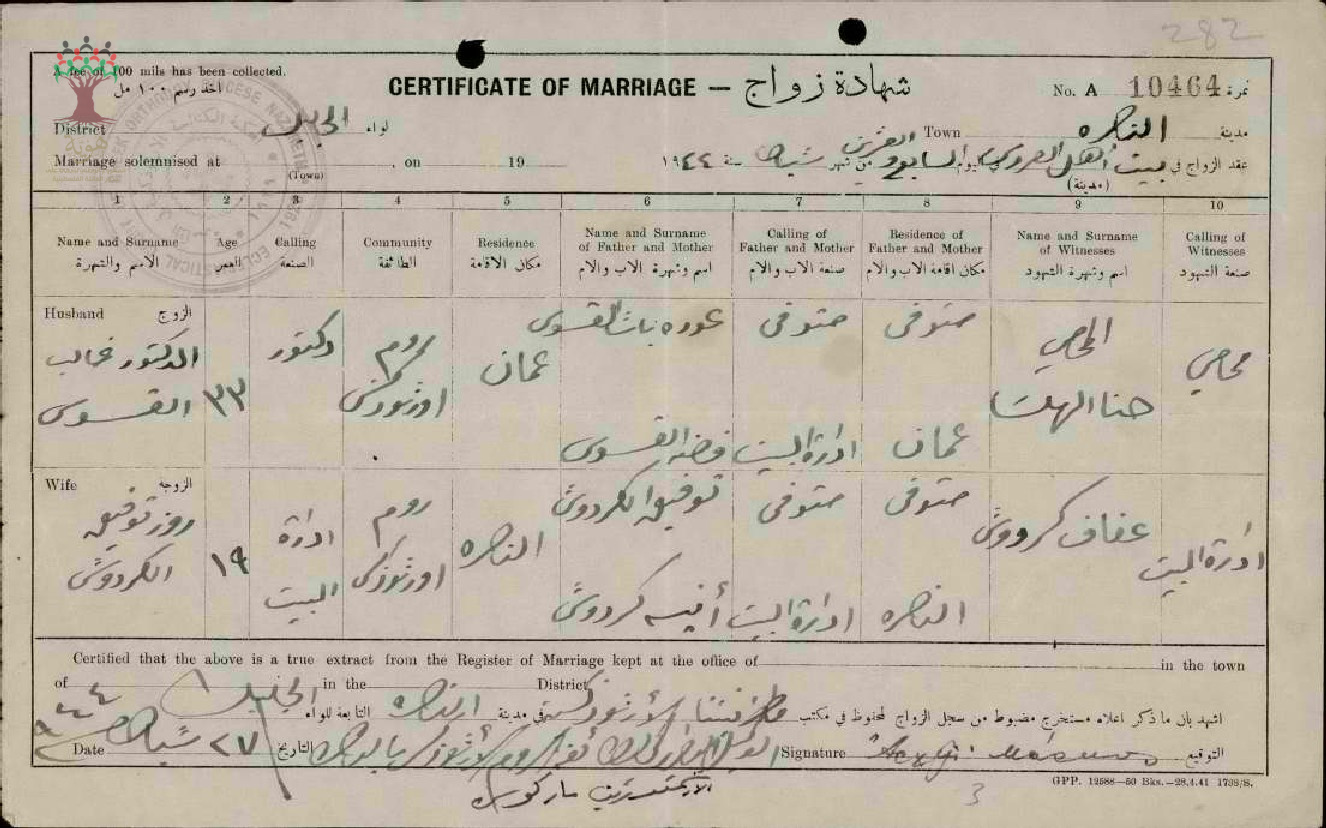 282
A fee of 100 mils has been collected.
اخذ رسم ١٠٠ مل
CERTIFICATE OF MARRIAGE — شهادة زواج
No. A 10464 نمرة
District الجليل لواء
Town الناصره مدينة
Marriage solemnised at , on 19
(Town)
عقد الزواج في بيت أهل العروس يوم السابع والعشرين من شهر شباط سنة ١٩٤٤
(مدينة)
1 2 3 4 5 6 7 8 9 10
Name and Surname Age Calling Community Residence Name and Surname of Father and Mother Calling of Father and Mother Residence of Father and Mother Name and Surname of Witnesses Calling of Witnesses
الاسم والشهرة العمر الصنعة الطائفة مكان الاقامة اسم وشهرة الاب والام صنعة الاب والام مكان اقامة الاب والام اسم وشهرة الشهود صنعة الشهود
Husband الزوج
الدكتور
القسوس
٣٣
دكتور
روم
اورثوذكس
عمان
عوده باشا القسوس
فضه القسوس
متوفي
ادارة البيت
متوفي
عمان
المحامي
حنا الهلسا
محامي
Wife الزوجة
روز توفيق
الكردوش
١٩
ادارة
البيت
روم
اورثوذكس
الناصره
توفيق الكردوش
أنيسه كردوش
متوفي
ادارة البيت
متوفي
الناصره
عفاف كردوش
ادارة البيت
Certified that the above is a true extract from the Register of Marriage kept at the office of in the town
of in the District
اشهد بأن ما ذكر اعلاه مستخرج مضبوط من سجل الزواج المحفوظ في مكتب مطرانيتنا الأرثوذكسية في مدينة الناصره التابعة للواء الجليل
Date ٢٧ شباط ١٩٤٤ التاريخ
Signature التوقيع
GPP. 12588—50 Bks.—28.4.41 1738/S.
3